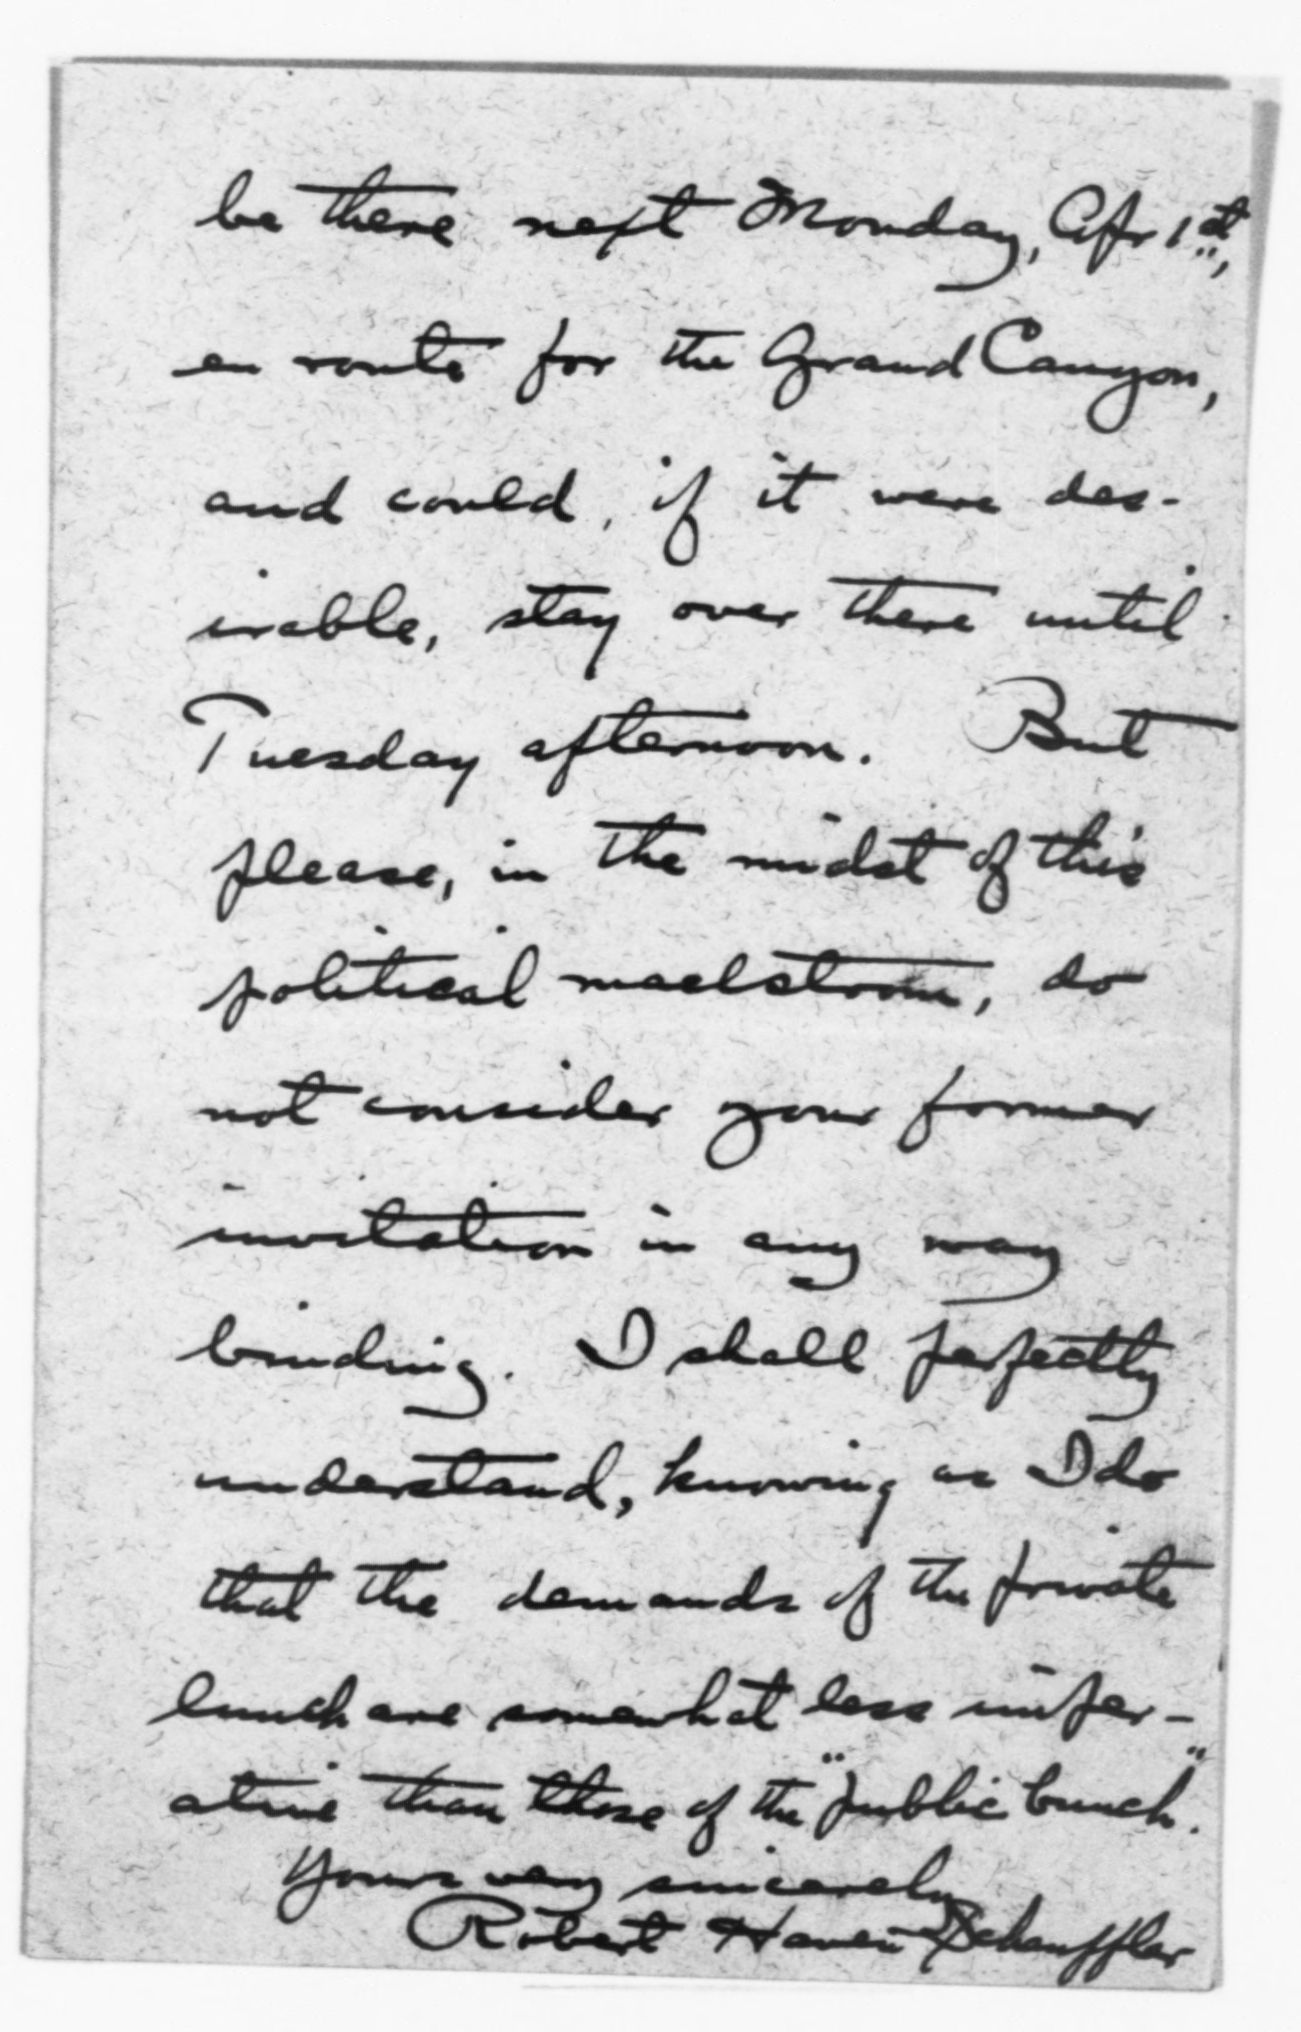 be there next Monday, Apr 1st,
en route for the Grand Canyon,
and could, if it were des-
irable, stay over there until
Tuesday afternoon. But
please, in the midst of this
political maelstrom, do
not consider your former
invitation in any way
binding. I shall perfectly
understand, knowing as I do
that the demands of the private
lunch are somewhat less imper-
ative than those of the "public lunch".
Yours very sincerely
Robert Haven Schauffler